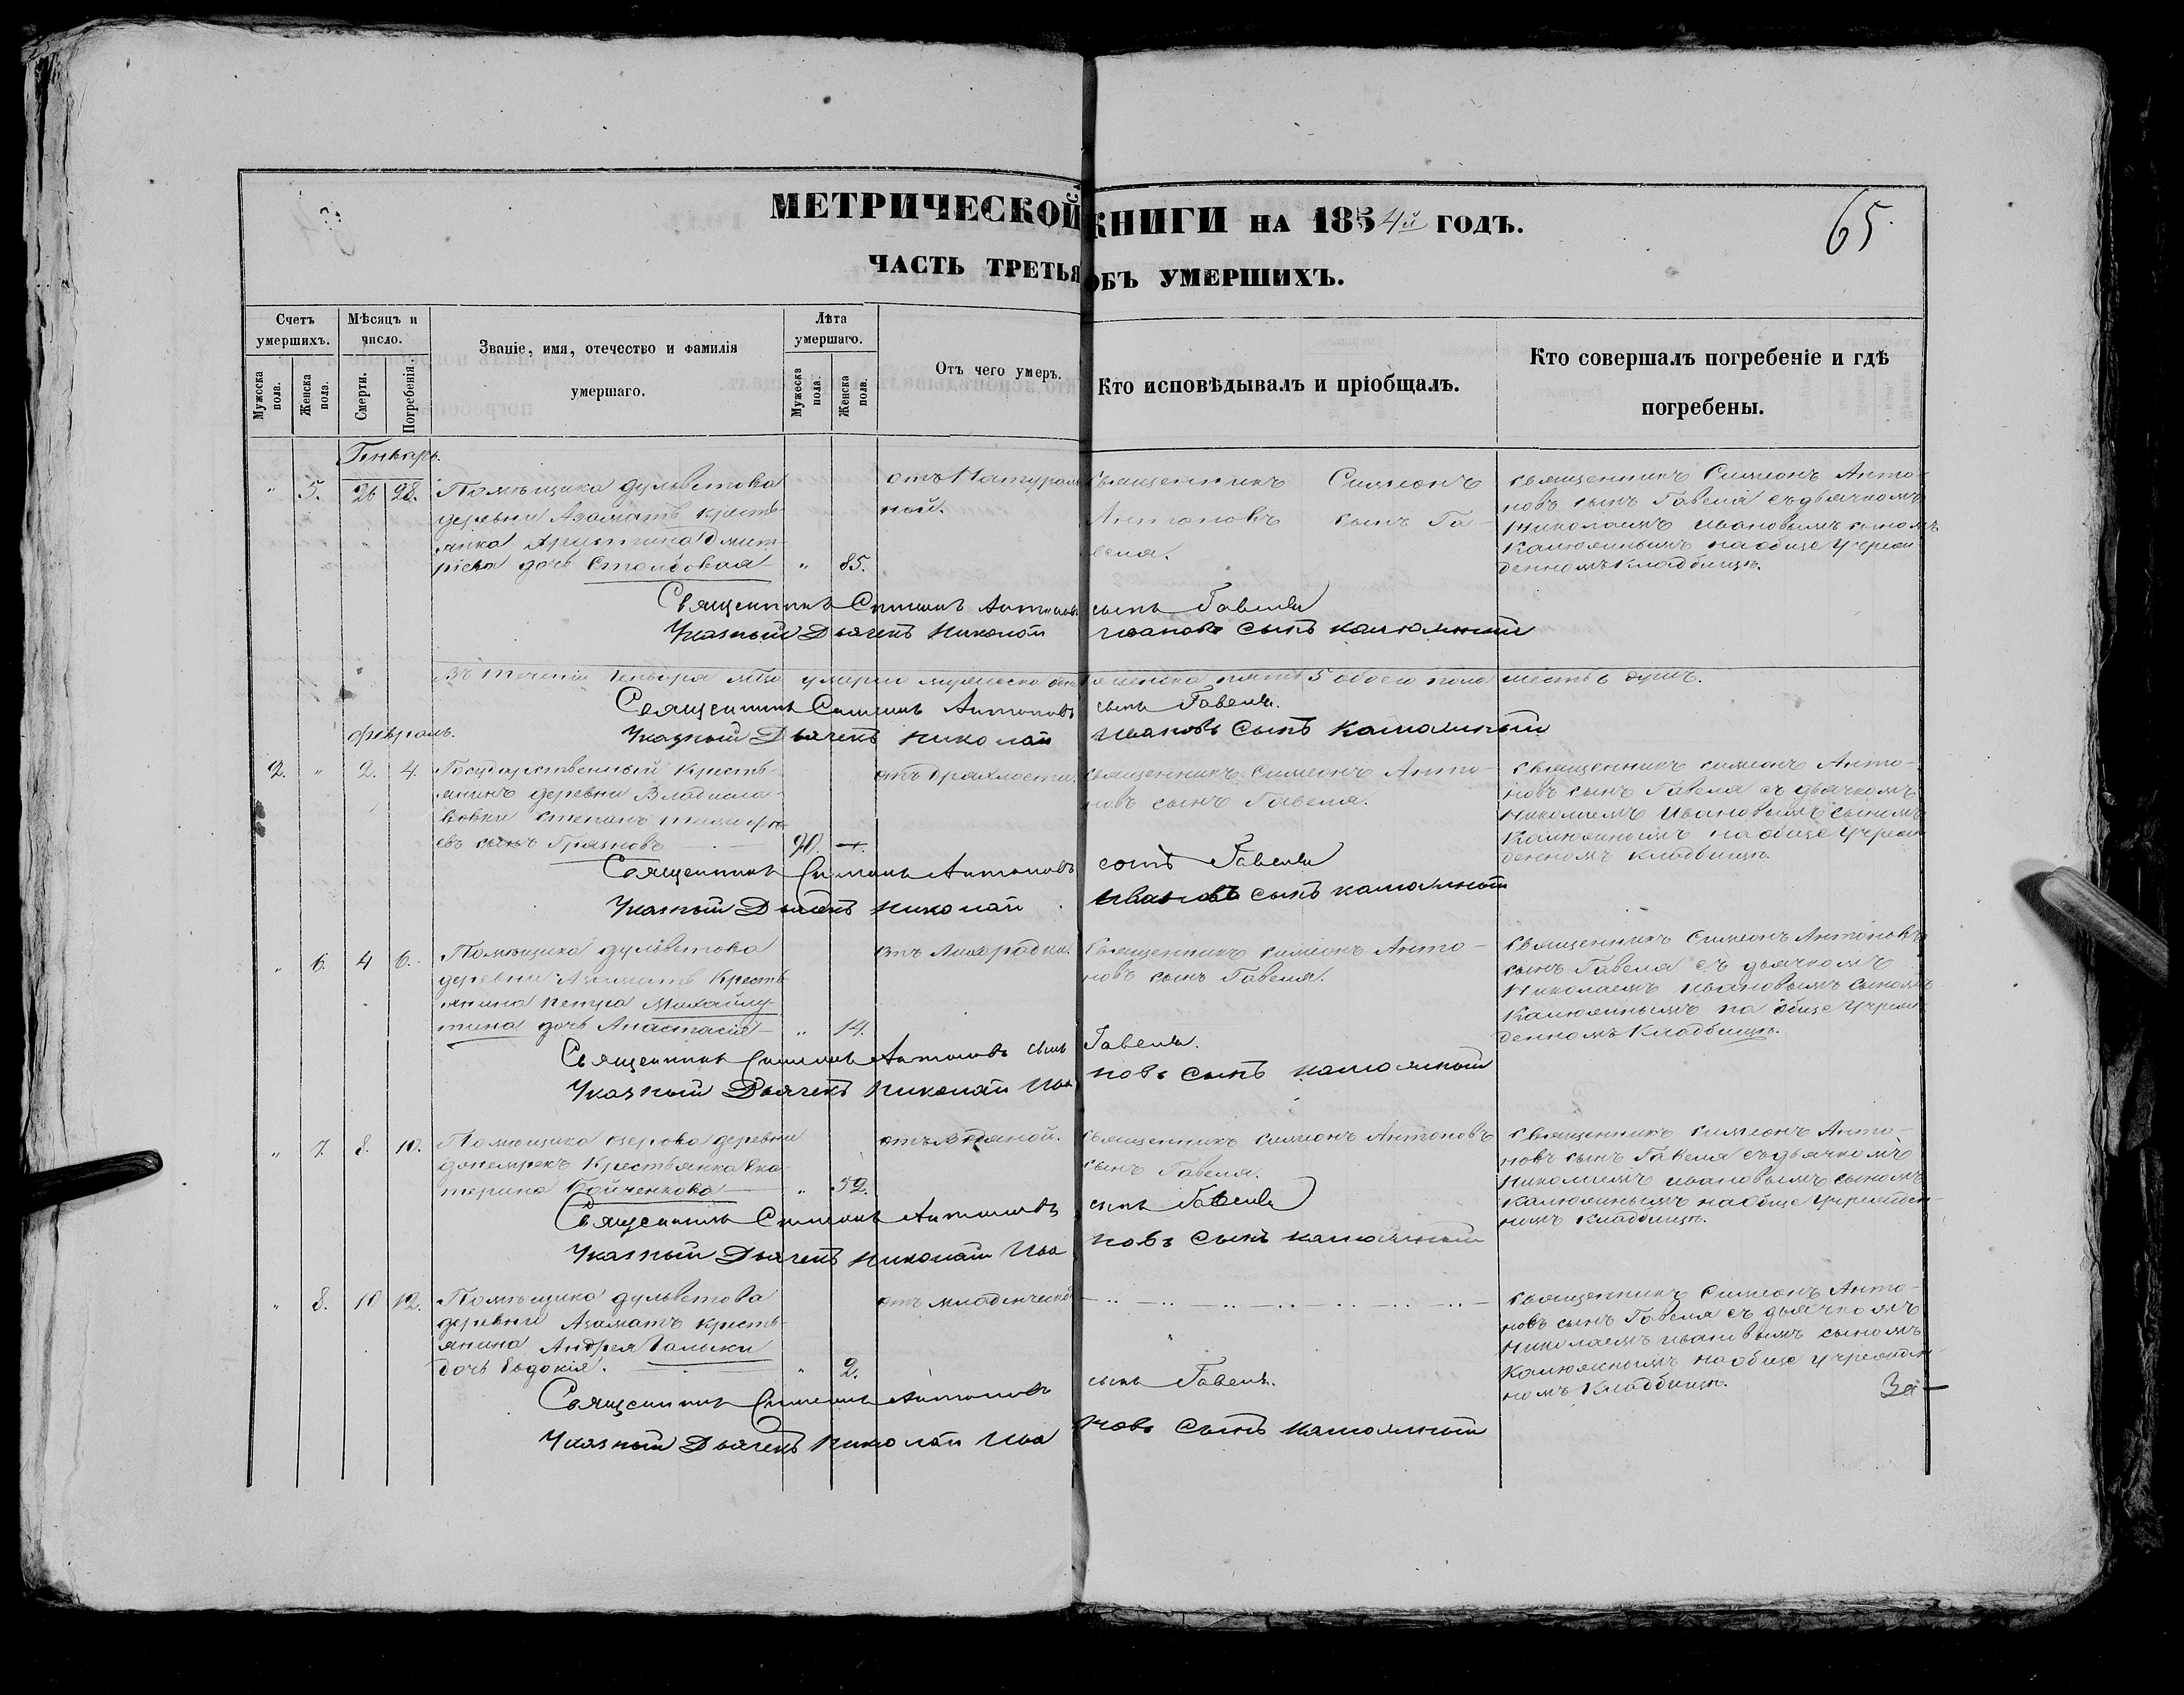 МЕТРИЧЕСКОЙ КНИГИ НА 1854й ГОДЪ.
65.
ЧАСТЬ ТРЕТЬЯ ОБЪ УМЕРШИХЪ.
Счетъ умершихъ.
Мужеска пола.
Женска пола.
Мѣсяцъ и число.
Смерти.
Погребенія.
Званіе, имя, отечество и фамилія умершаго.
Лѣта умершаго.
Мужеска пола.
Женска пола.
Отъ чего умеръ.
Кто исповѣдывалъ и пріобщалъ.
Кто совершалъ погребеніе и гдѣ погребены.
Генварь.
" 5. 26 28.
Помѣщика Дульветова
деревни Азаматъ кресть-
янка Христина Дмит-
ріева дочь Столбовая " 85.
отъ Натураль
ной.
Священникъ Симеонъ
Антоновъ сынъ Га-
веля.
священникъ Симеонъ Анто-
новъ сынъ Гавеля съ дьячкомъ
Николаемъ Ивановымъ сыномъ
Калюжнымъ на обще учреж
денномъ кладбищѣ.
Священникъ Симеонъ Антоновъ сынъ Гавеля
Указный Дьячекъ Николай Ивановъ сынъ Калюжный
Въ теченіи Генваря умерло мужеска женска пять 5 обоего пола шесть 6 душъ.
Священникъ Симеонъ Антоновъ сынъ Гавеля.
Указный Дьячекъ Николай Ивановъ сынъ Калюжный
Февраль.
2. " 2. 4.
Государственный кресть-
янинъ деревни Владисла-
вовки Степанъ
евъ сынъ Грязновъ 90.
отъ Драхлости.
священникъ Симеонъ Анто-
новъ сынъ Гавеля.
священникъ Симеонъ Анто-
новъ сынъ Гавеля съ дьячкомъ
Николаемъ Ивановымъ сыномъ
Калюжнымъ на обще учреж
денномъ кладбищѣ.
Священникъ Симеонъ Антоновъ сынъ Гавеля
Указный Дьячекъ Николай Ивановъ сынъ Калюжный
" 6. 4 6.
Помѣщика Дульветова
деревни Азаматъ кресть-
янина Петра Михайлу-
тина дочь Анастасія " 14.
отъ Лихорадки.
Священникъ Симеонъ Анто-
новъ сынъ Гавеля.
священникъ Симеонъ Антоновъ
сынъ Гавеля съ дьячкомъ
Николаемъ Ивановымъ сыномъ
Калюжнымъ на обще учреж
денномъ кладбищѣ.
Священникъ Симеонъ Антоновъ сынъ Гавеля.
Указный Дьячекъ Николай Ивановъ сынъ Калюжный
" 7. 8. 10.
Помѣщика деревни
крестьянка Ека-
терина Бойченкова " 52.
отъ Водяной.
священникъ Симеонъ Антоновъ
сынъ Гавеля.
священникъ Симеонъ Анто-
новъ сынъ Гавеля съ дьячкомъ
Николаемъ Ивановымъ сыномъ
Калюжнымъ на обще учрежден-
номъ кладбищѣ.
Священникъ Симеонъ Антоновъ сынъ Гавеля
Указный Дьячекъ Николай Ивановъ сынъ Калюжный
" 8. 10 12.
Помѣщика Дульветова
деревни Азаматъ кресть-
янина Андрея Галыки
дочь Евдокія. " 2.
отъ младенческой
священникъ Симеонъ Анто-
новъ сынъ Гавеля съ дьячкомъ
Николаемъ Ивановымъ сыномъ
Калюжнымъ на обще учрежден
номъ кладбищѣ.
За-
Священникъ Симеонъ Антоновъ сынъ Гавеля.
Указный Дьячекъ Николай Ивановъ сынъ Калюжный